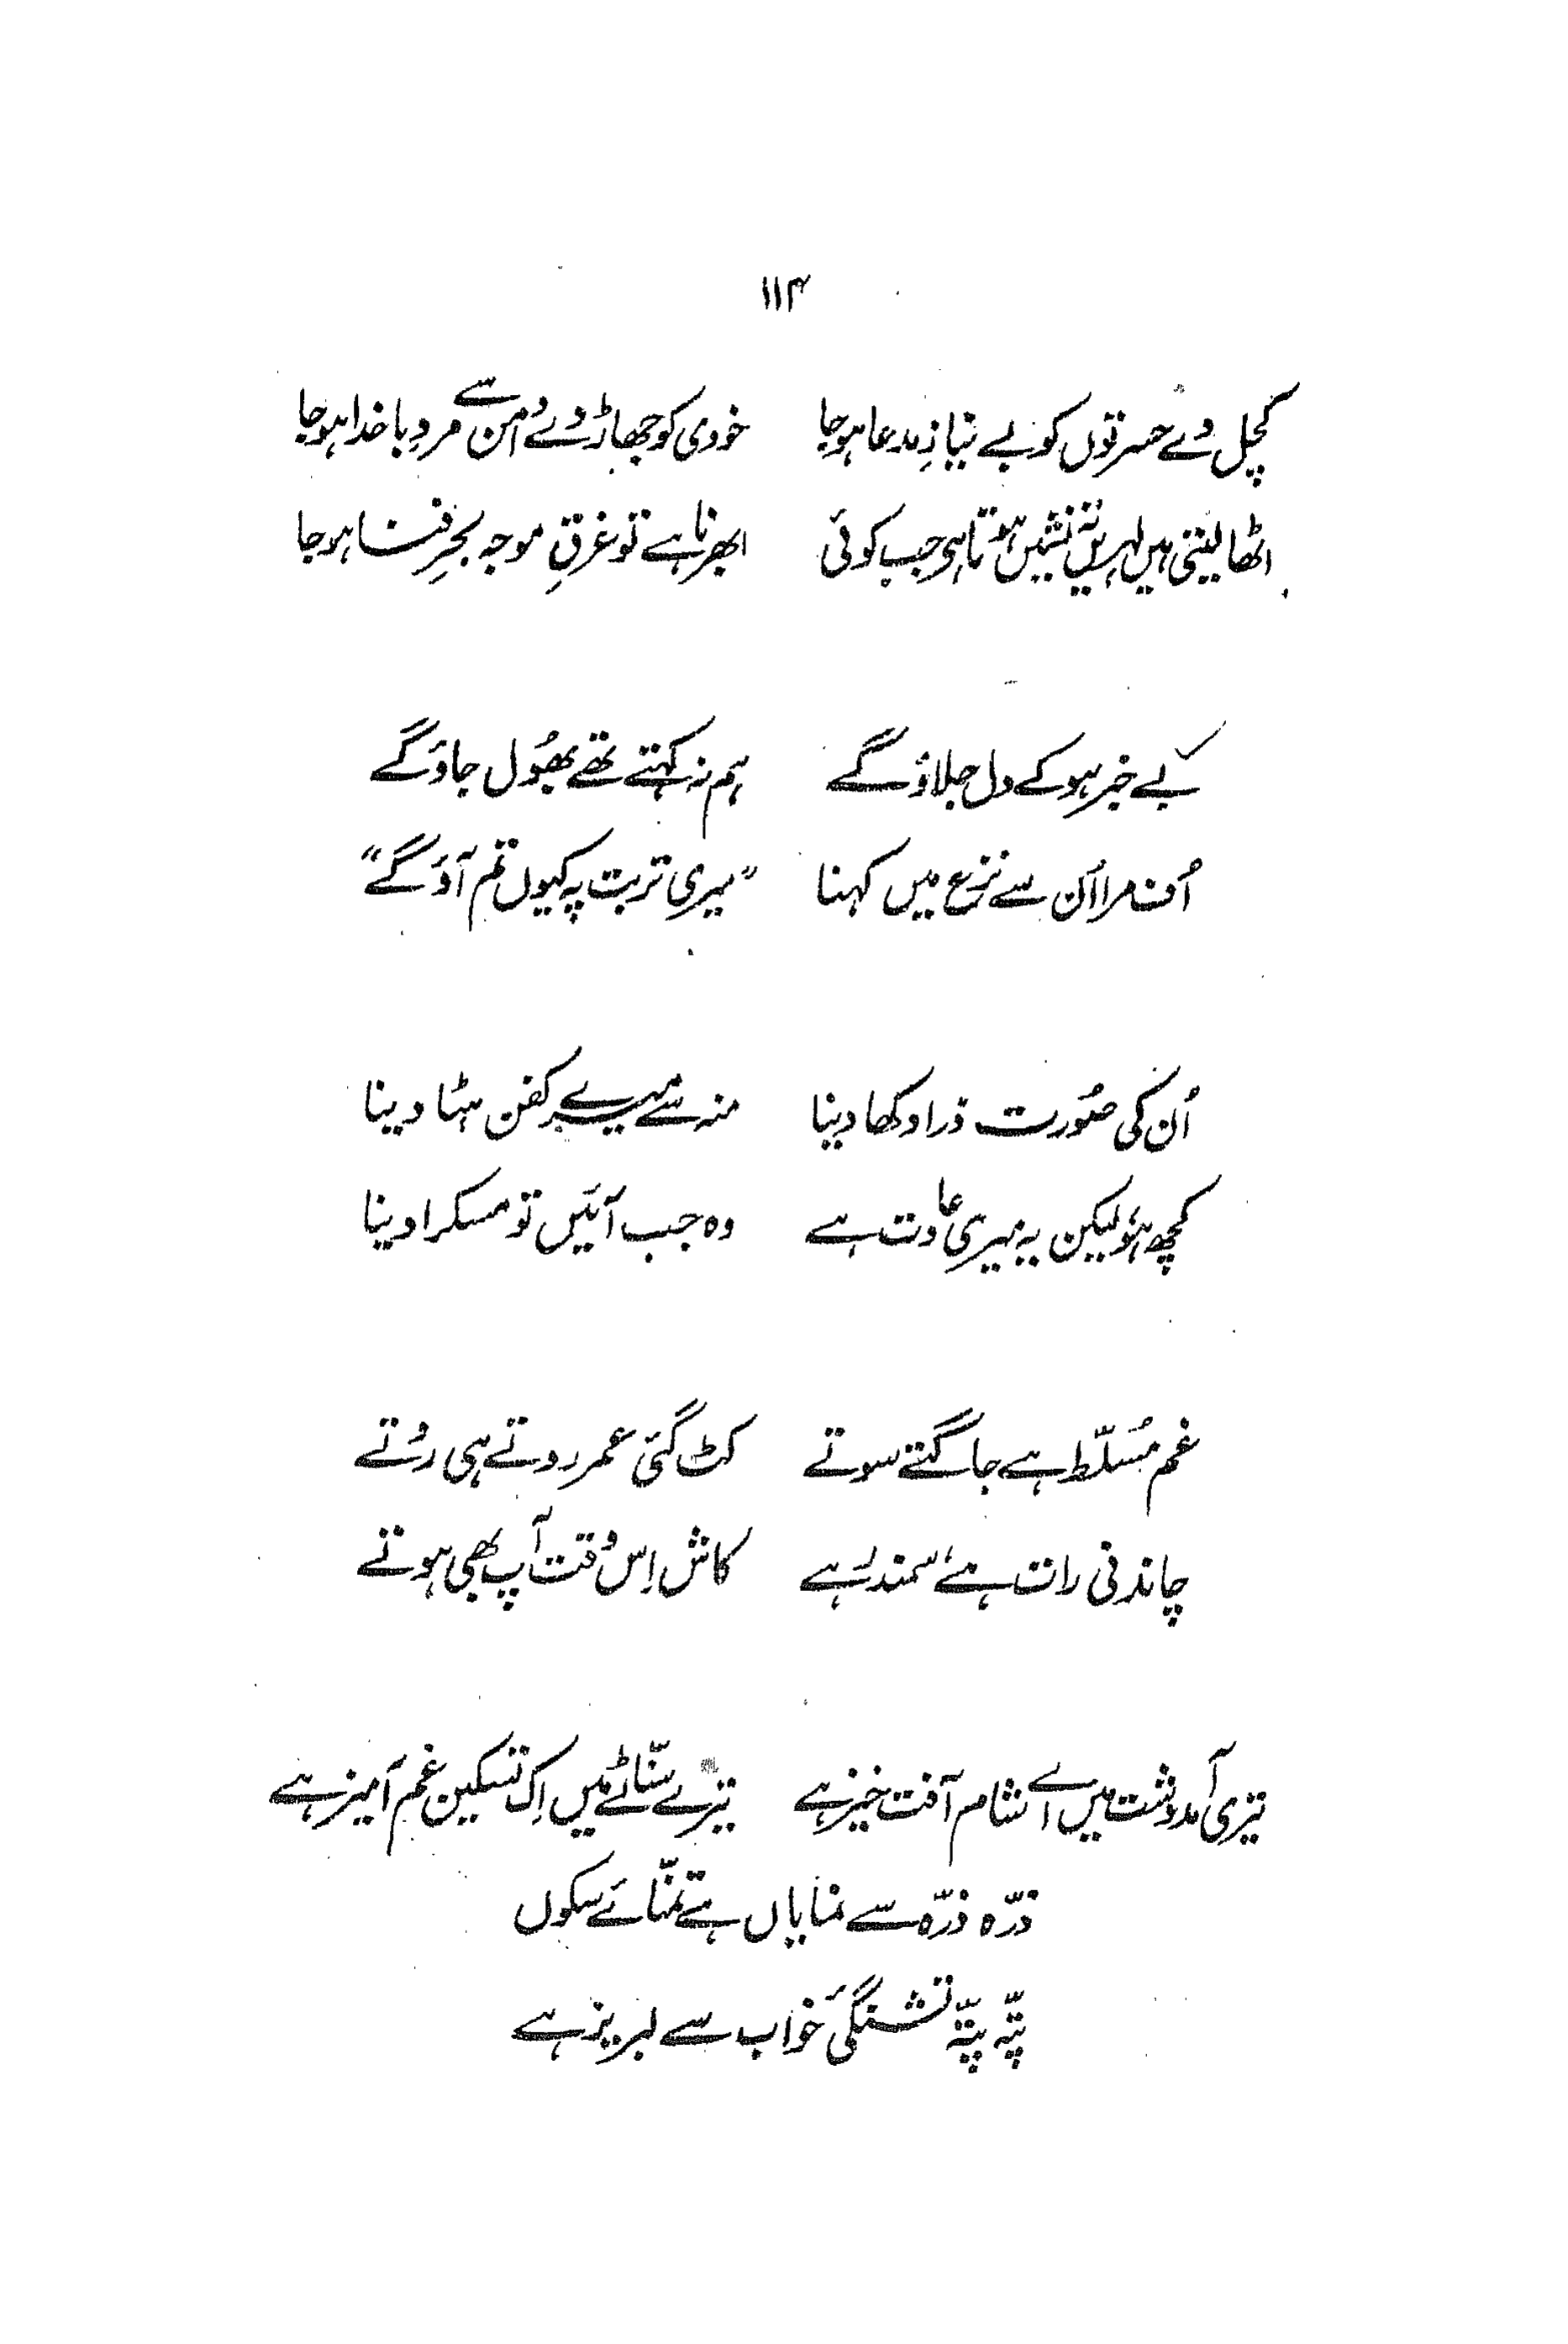 ۱۱۴
کچل دے حسرتوں کو بے نیازِ مدعا ہو جا خودی کو جھاڑ دے دامن سے مردِ باخدا ہو جا
اٹھا لیتی ہیں لہریں تہ نشیں ہوتا ہی جب کوئی ابھرنا ہے تو غرقِ موجہ بحرِ فنا ہو جا
بے خبر ہو کے دل جلاؤ گے ہم نہ کہتے تھے بھُول جاؤ گے
اُف مرا اُن سے نزع میں کہنا "میری تربت پہ کیوں تم آؤ گے"
اُن کی صُورت ذرا دکھا دینا منہ سے میرے کفن ہٹا دینا
کچھ ہو لیکن یہ میری عادت ہے وہ جب آئیں تو مسکرا دینا
غم مُسلّط ہے جاگتے سوتے کٹ گئی عمر روتے ہی روتے
چاندنی رات ہے، سمندر ہے کاش اِس وقت آپ بھی ہوتے
تیری آمد دشت میں اے شام آفت خیز ہے تیرے سنّاٹے میں اِک تسکین غم آمیز ہے
ذرّہ ذرّہ سے نمایاں ہے تمنّائے سکوں
پتّہ پتّہ تشنگیٔ خواب سے لبریز ہے